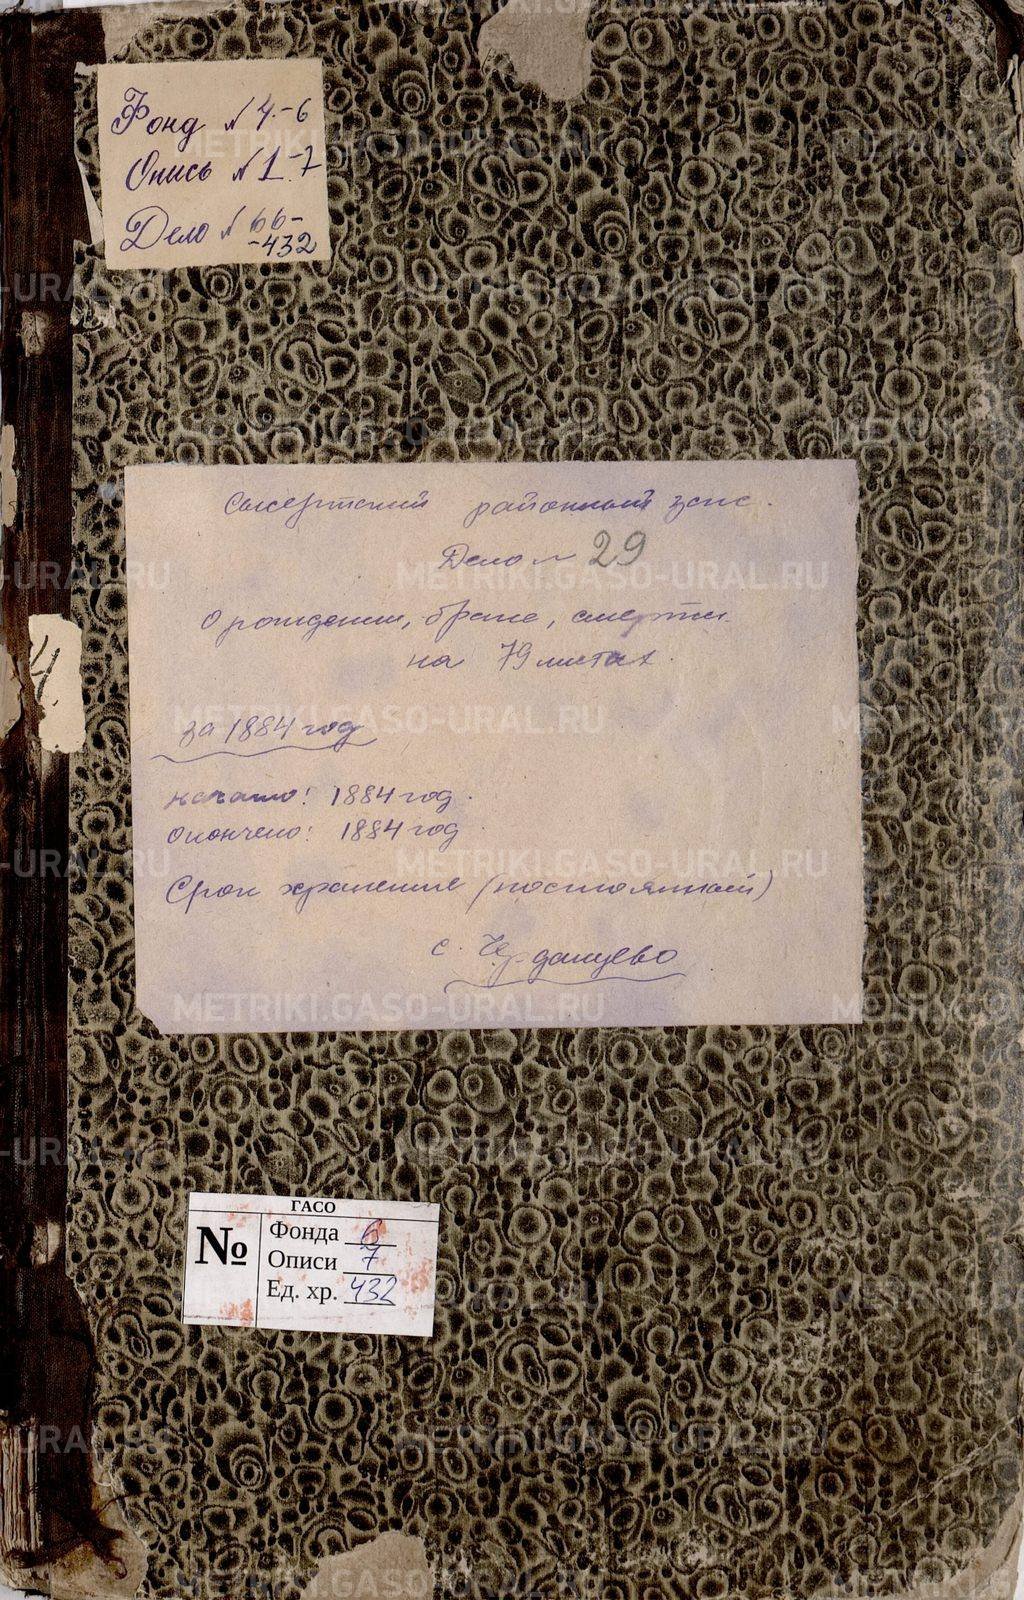 Фонд № 4-6
Опись № 1-7
Дело № 66-
-432
Сысертский районный загс.
Дело № 29
О рождении, браке, смерти
на 79 листах.
за 1884 год
начато: 1884 год.
окончено: 1884 год.
Срок хранения (постоянный)
с. Щ.
ГАСО
№
Фонда 6
Описи 7
Ед. хр. 432
METRIKI.GASO-URAL.RU